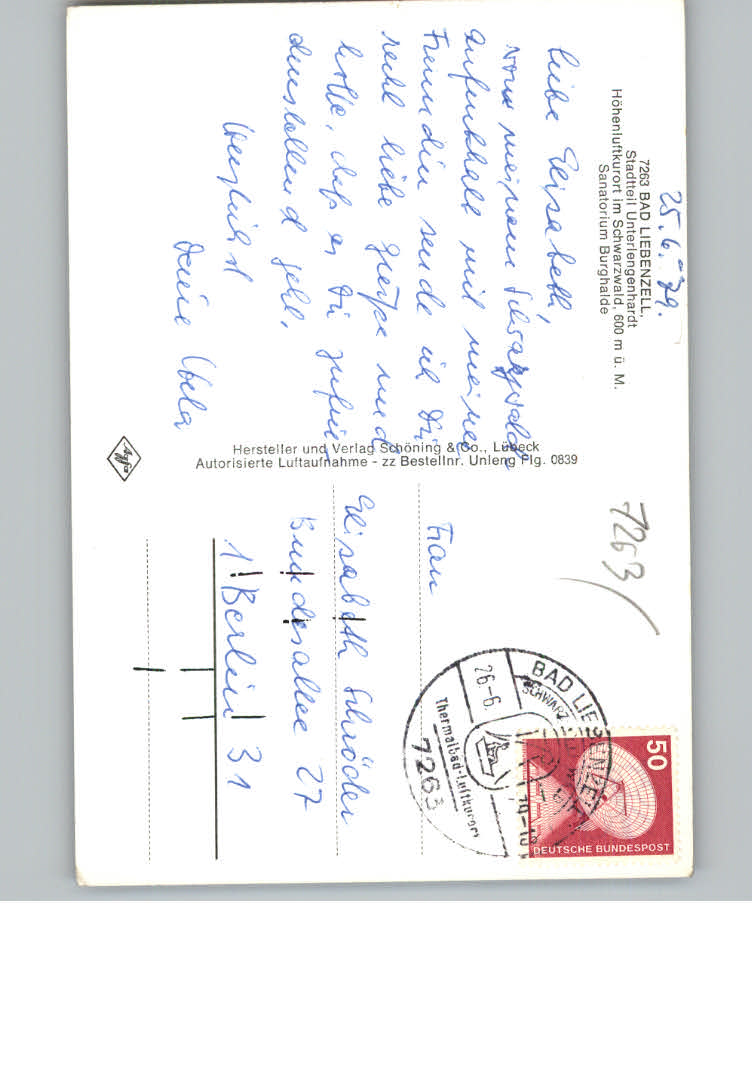 25.6.79.
7263 BAD LIEBENZELL,
Stadtteil Unterlengenhardt
Höhenluftkurort im Schwarzwald, 600 m ü. M.
Sanatorium Burghalde
Liebe Elisabeth,
von meinem Schwarzwald-
aufenthalt mit meiner
Freundin sende ich Dir
recht liebe Grüße und
hoffe, daß es Dir zufrie-
denstellend geht.
Herzlichst
Deine
Hersteller und Verlag Schöning & Co., Lübeck
Autorisierte Luftaufnahme - zz Bestellnr. Unleng Flg. 0839
Agfa
7263
Frau
Elisabeth Schröder
Bundesallee 27
1 Berlin 31
BAD LIEBENZELL
SCHWARZ
26-6.
79-18
Thermalbad-Luftkurort
7263
50
DEUTSCHE BUNDESPOST